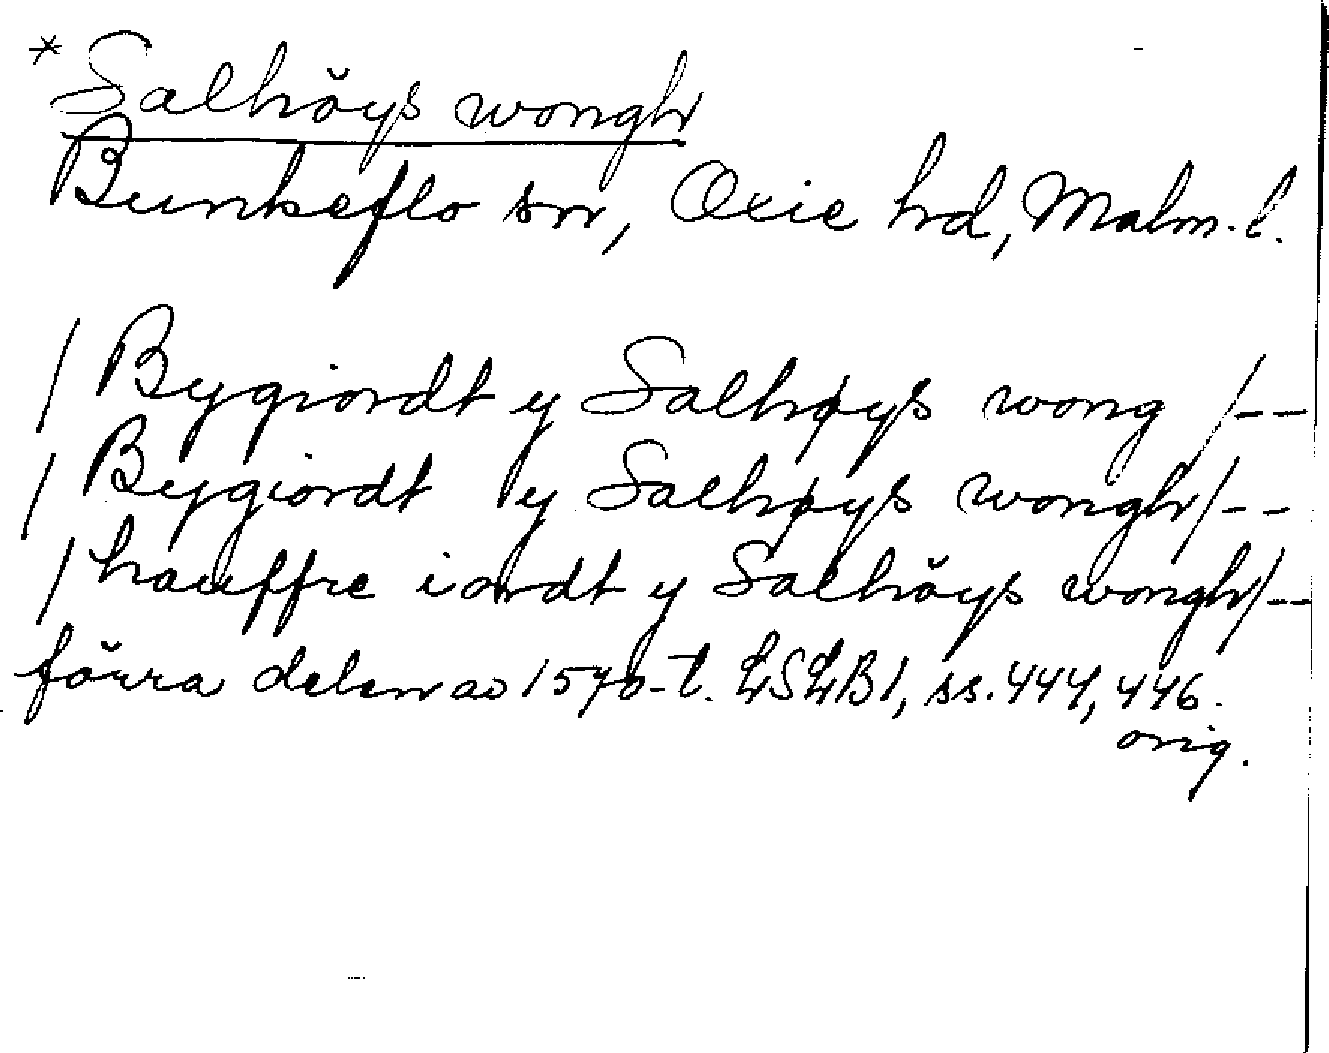 * Salhöys wongh
Bunkeflo sn, Oxie hd, Malm. l.
/ Bygiordt y Salhøys wong /--
/ Bygiordt y Salhøys wongh /--
/ hauffre iordt y Salhöys wongh /--
förra delen av 1570-t. LSLB1, ss. 444, 446.
orig.